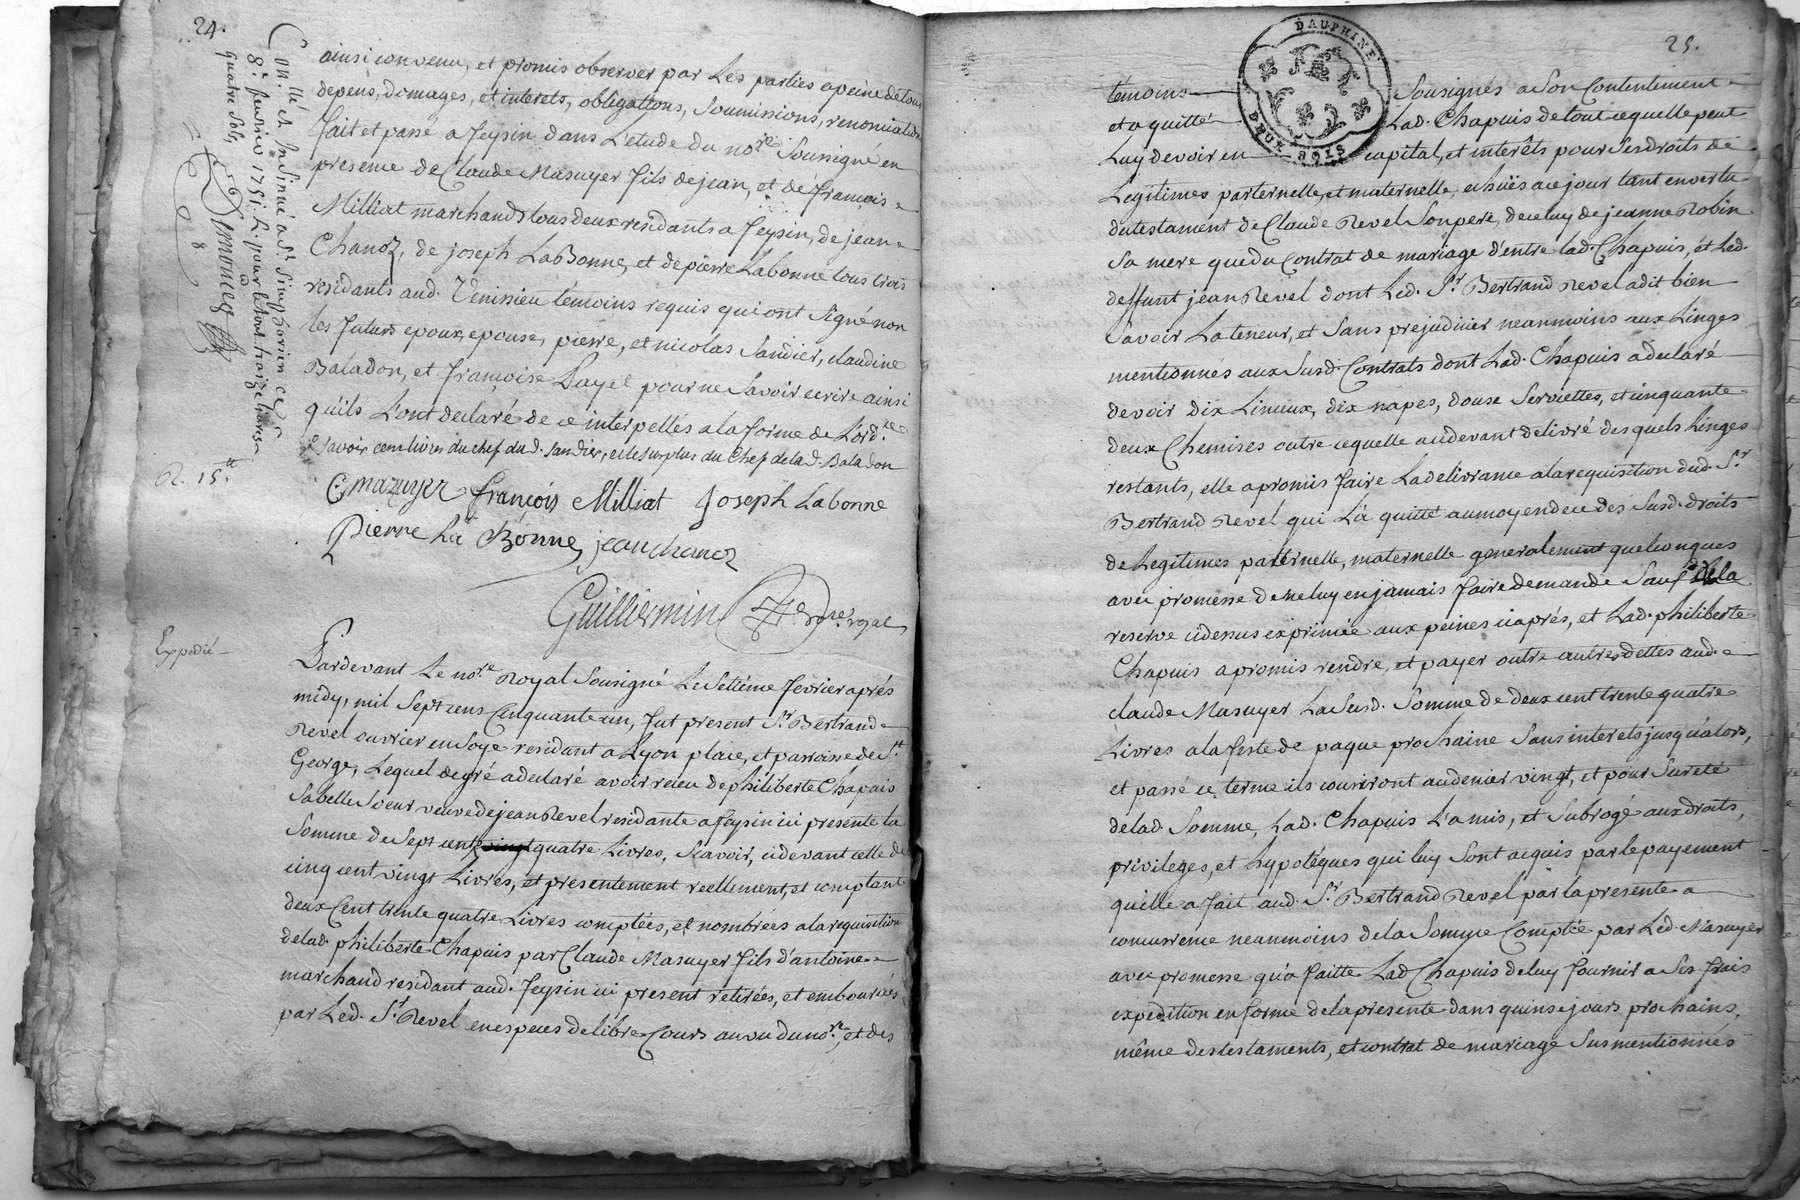 24.
Con.llé et insinué a St. Simphorien ce
8e. fevrier 1751. R. pour le tout traize livres
quatre sols,
Desmouceg
ainsi convenu, et promis observer par Les parties apeine detous
depens, domages, et interets, obligations, Soumissions, renonciation
fait et passé a feysin dans L'etude du nore. Soussigné en
presence de Claude Masuyer fils dejean, et de françois
Milliat marchands tous deux residants a feysin, dejean
Chanoz, de joseph Labonne, et de pierre Labonne tous trois
residants aud. Venissieu temoins requis qui ont Signé non
les futurs epoux, epouse, pierre, et nicolas Sandier, claudine
Baladon, et françoise Payet pour ne Savoir ecrire ainsi
qu'ils L'ont declaré de ce interpellés a la forme de L'ord.ce
Savoir cent livres du chef dud. Sandier, et le surplus du chef de lad. Baladon
R. 15tt.
Cmazuyer françois Milliat Joseph Labonne
Pierre La Bonne, jean chanoz
Guilliermin nre. royal
Expedié
Pardevant Le nore. Royal Sousigné Le Setiéme fevrier aprés
midy, mil Sept cens Cinquante un, fut present Sr. Bertrand
Revel ouvrier en Soye residant a Lyon place, et parroisse de St.
George, Lequel de gré a declaré avoir receu de philiberte Chapuis
Sa belle Soeur veuve dejean Revel residante a feysin ici presente la
Somme de Sept cent vingt quatre Livres, Scavoir, cidevant celle de
cinq cent vingt Livres, et presentement reellement, et comptant
deux Cent trente quatre Livres comptées, et nombrées a la requisition
delad. philiberte Chapuis par Claude Masuyer fils d'antoine
marchand residant aud. feysin ici present retirées, et emboursées
par Led. Sr. Revel en especes de libre Cours au vu du nore. et des
25.
DAUPHINE
DEUX SOLS
témoins Sousignés a Son Contentement
et a quitté Lad. Chapuis de tout ce quelle peut
Luy devoir en capital, et intérêts pour Ses droits de
Legitimes parternelle, et maternelle, echüs a ce jour tant en vertu
du testament de Claude Revel Son pere, de celuy de jeanne Robin
Sa mere que du Contrat de mariage d'entre lad. Chapuis, et Led.
deffunt jean Revel dont Led. Sr. Bertrand Revel a dit bien
Savoir La teneur, et Sans prejudicier neanmoins aux Linges
mentionnés aux Susd. Contrats dont Lad. Chapuis a declaré
devoir dix Linceux, dix napes, douse Serviettes, et cinquante
deux Chemises outre ce quelle a cidevant delivré desquels Linges
restants, elle a promis faire La delivrance a la requisition dud. Sr.
Bertrand Revel qui L'a quitté au moyen de ce des Susd. droits
de Legitimes paternelle, maternelle generalement quelconques
avec promesse de ne luy en jamais faire demande Sauf de la
reserve cidessus exprimée aux peines ciaprés, et Lad. philiberte
Chapuis a promis rendre, et payer outre autres dettes aud.
claude Masuyer La Susd. Somme de deux cent trente quatre
Livres a la feste de paque prochaine Sans interets jusqu'alors,
et passé ce terme ils courront au denier vingt, et pour Sureté
de lad. Somme, Lad. Chapuis L'a mis, et Subrogé aux droits,
privileges, et hypotéques qui luy Sont acquis par le payement
qu'elle a fait aud. Sr. Bertrand Revel par la presente a
concurrence neanmoins de la Somme Comptée par Led. Masuyer
avec promesse qu'a faitte Lad. Chapuis de luy fournir a Ses frais
expedition en forme de la presente dans quinse jours prochains,
même des testaments, et contrat de mariage Susmentionnés